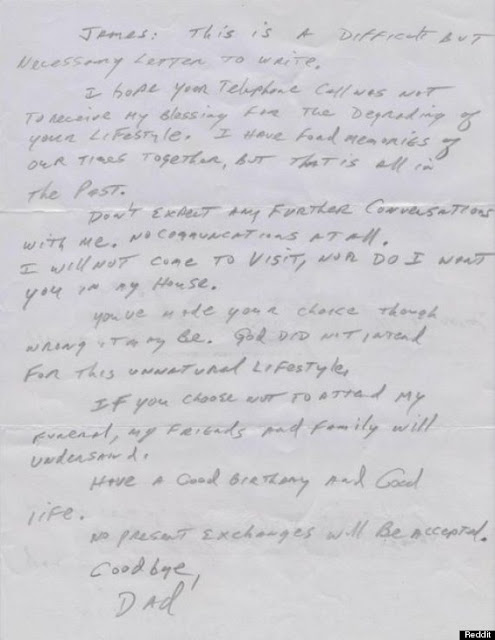 James: This is a Difficult But
Necessary Letter to write.
I hope your Telephone Call was not
To receive my Blessing for the Degrading of
your Lifestyle. I have fond memories of
our times together, But that is all in
the Past.
Don't expect any further Conversations
with me. No communcations at all.
I will not come to visit, nor do I want
you in my House.
You've made your choice though
wrong it may be. God did not intend
For this unnatural Lifestyle.
If you choose not to attend my
Funeral, my Friends and Family will
understand.
Have a Good Birthday and Good
Life.
No present exchanges will Be accepted.
Goodbye,
Dad
Reddit